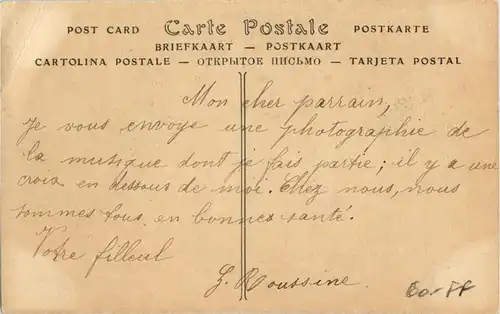 POST CARD Carte Postale POSTKARTE
BRIEFKAART — POSTKAART
CARTOLINA POSTALE — ОТКРЫТОЕ ПИСЬМО — TARJETA POSTAL
Mon cher parrain,
Je vous envoye une photographie de
la musique dont je fais partie; il y a une
croix en dessous de moi. Chez nous, nous
sommes tous en bonnes santé.
Votre filleul
Roussine.